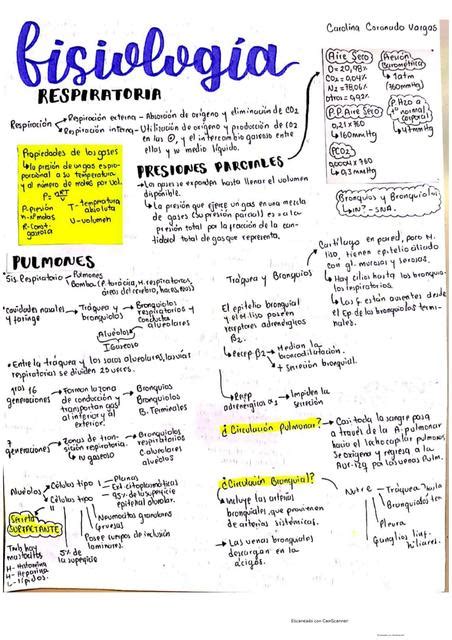 Carolina Coronado Vargas
fisiología
RESPIRATORIA
Respiración
Respiración externa - Absorción de oxígeno y eliminación de CO2
Respiración interna - Utilización de oxígeno y producción de CO2
en las, y el intercambio gaseoso entre
ellas y su medio líquido.
Aire Seco
O= 20,98%
CO2= 0,04%
N2= 78,06%
otros= 0,92%
Presión
Barométrica
1atm
(760mmHg)
P.P. Aire Seco
0,21 x 760
160mmHg
P H2O a
Tº normal
corporal
47mmHg
PCO2
0,0004 x 760
0,3 mmHg
Propiedades de los gases
la presión de un gas es pro-
porcional a su temperatura
y al número de moles por vol.
P= nRT
V
P-presión
n-nº moles
R-const.
gaseosa
T-temperatura
absoluta
V-volumen
PRESIONES PARCIALES
Los gases se expanden hasta llenar el volumen
disponible.
La presión que ejerce un gas en una mezcla
de gases (su presión parcial) es = a la
presión total por la fracción de la can-
tidad total de gas que representa.
Bronquios y Bronquiolos
IN? - SNA.
PULMONES
Sis. Respiratorio
Pulmones
Bomba (P. torácica, M. respiratorios,
áreas del cerebro, haces, nervios)
Cavidades nasales
y faringe
Tráquea y
bronquiolos
Bronquiolos
respiratorios y
conductos
alveolares
Alvéolos
I Gaseoso
Tráquea y Bronquios
Cartílago en pared, poco M.
liso, tienen epitelio ciliado
con gl. mucosas y serosas.
Hay cilios hasta los bronquio-
los respiratorios.
Las g están ausentes desde
el Ep de los bronquiolos termi-
nales.
El epitelio bronquial
y el M. liso poseen
receptores adrenérgicos
β2.
Recep β2
Median la
broncodilatación.
+ Secreción bronquial.
Recep
adrenérgica α1
Impiden la
secreción
Entre la tráquea y los sacos alveolares, las vías
respiratorias se dividen 23 veces.
1ras 16
generaciones
Forman la zona
de conducción y
transportan gas
al inferior y al
exterior.
Bronquios
Bronquiolos
B. Terminales
7
generaciones
Zonas de tran-
sición respiratoria.
gaseoso
Bronquiolos
respiratorios
C. alveolares
alvéolos
¿Circulación pulmonar?
Casi toda la sangre pasa
a través de la A. pulmonar
hacia el lecho capilar pulmonar,
se oxigena y regresa a la
Aur. izq por las venas Pulm.
Alvéolos
Células tipo I
Planas
Ext. citoplasmáticas
95% de la superficie
epitelial alveolar.
Células tipo II
Neumocitos granulares
(gruesas)
Posee cuerpos de inclusión
laminares.
5% de
la superficie
Secreta
SURFACTANTE
Tmb hay
mastocitos
H- Histamina
H- Heparina
L- lípidos.
¿Circulación Bronquial?
Incluye las arterias
bronquiales, que provienen
de arterias sistémicas.
Las venas bronquiales
descargan en la
ácigos.
Nutre
Tráquea hasta
Bronquiolos ter.
Pleura
Ganglios linf.
hiliares.
Escaneado con CamScanner